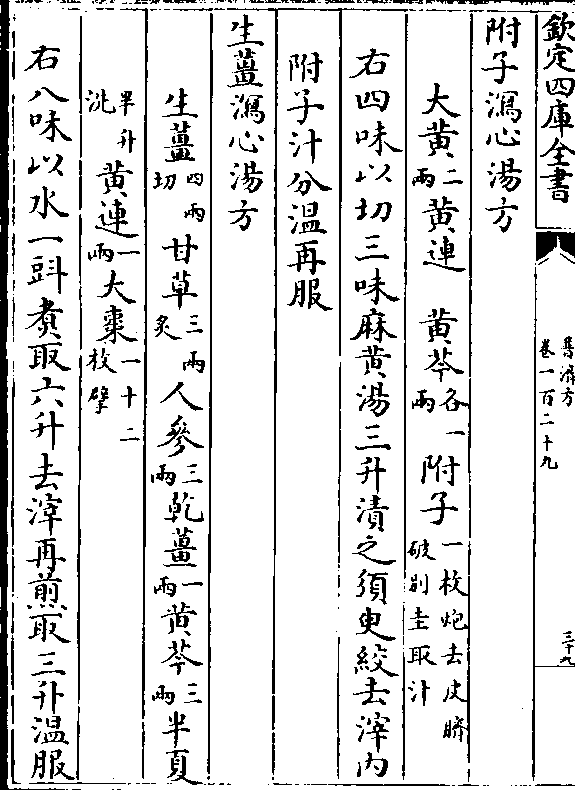 欽定四庫全書
普濟方
卷一百二十九
三十九
附子瀉心湯方
大黃二兩黃連 黃芩各一兩附子一枚炮去皮臍破别圭取汁
右四味以切三味麻黃湯三升漬之須臾絞去滓内
附子汁分溫再服
生薑瀉心湯方
生薑四兩切甘草三兩炙人參三兩乾薑一兩黃芩三兩半夏
半升洗黃連一兩大棗一十二枚擘
右八味以水一㪷煮取六升去滓再煎取三升溫服